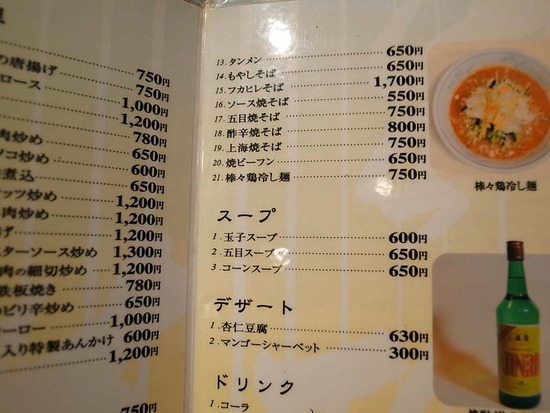 の唐揚げ 750円
ロース 750円
1,000円
1,200円
肉炒め 780円
コ炒め 650円
煮込 600円
650円
ッツ炒め 1,200円
肉炒め 1,200円
げ 1,200円
ターソース炒め 1,300円
肉の細切炒め 1,200円
鉄板焼き 780円
のピリ辛炒め 650円
ーロー 1,000円
入り特製あんかけ 600円
1,200円
750円
13. タンメン 650円
14. もやしそば 650円
15. フカヒレそば 1,700円
16. ソース焼そば 550円
17. 五目焼そば 750円
18. 酢辛焼そば 800円
19. 上海焼そば 750円
20. 焼ビーフン 650円
21. 棒々鶏冷し麺 750円
スープ
1. 玉子スープ 600円
2. 五目スープ 650円
3. コーンスープ 650円
デザート
1. 杏仁豆腐 630円
2. マンゴーシャーベット 300円
ドリンク
1. コーラ
JINRO